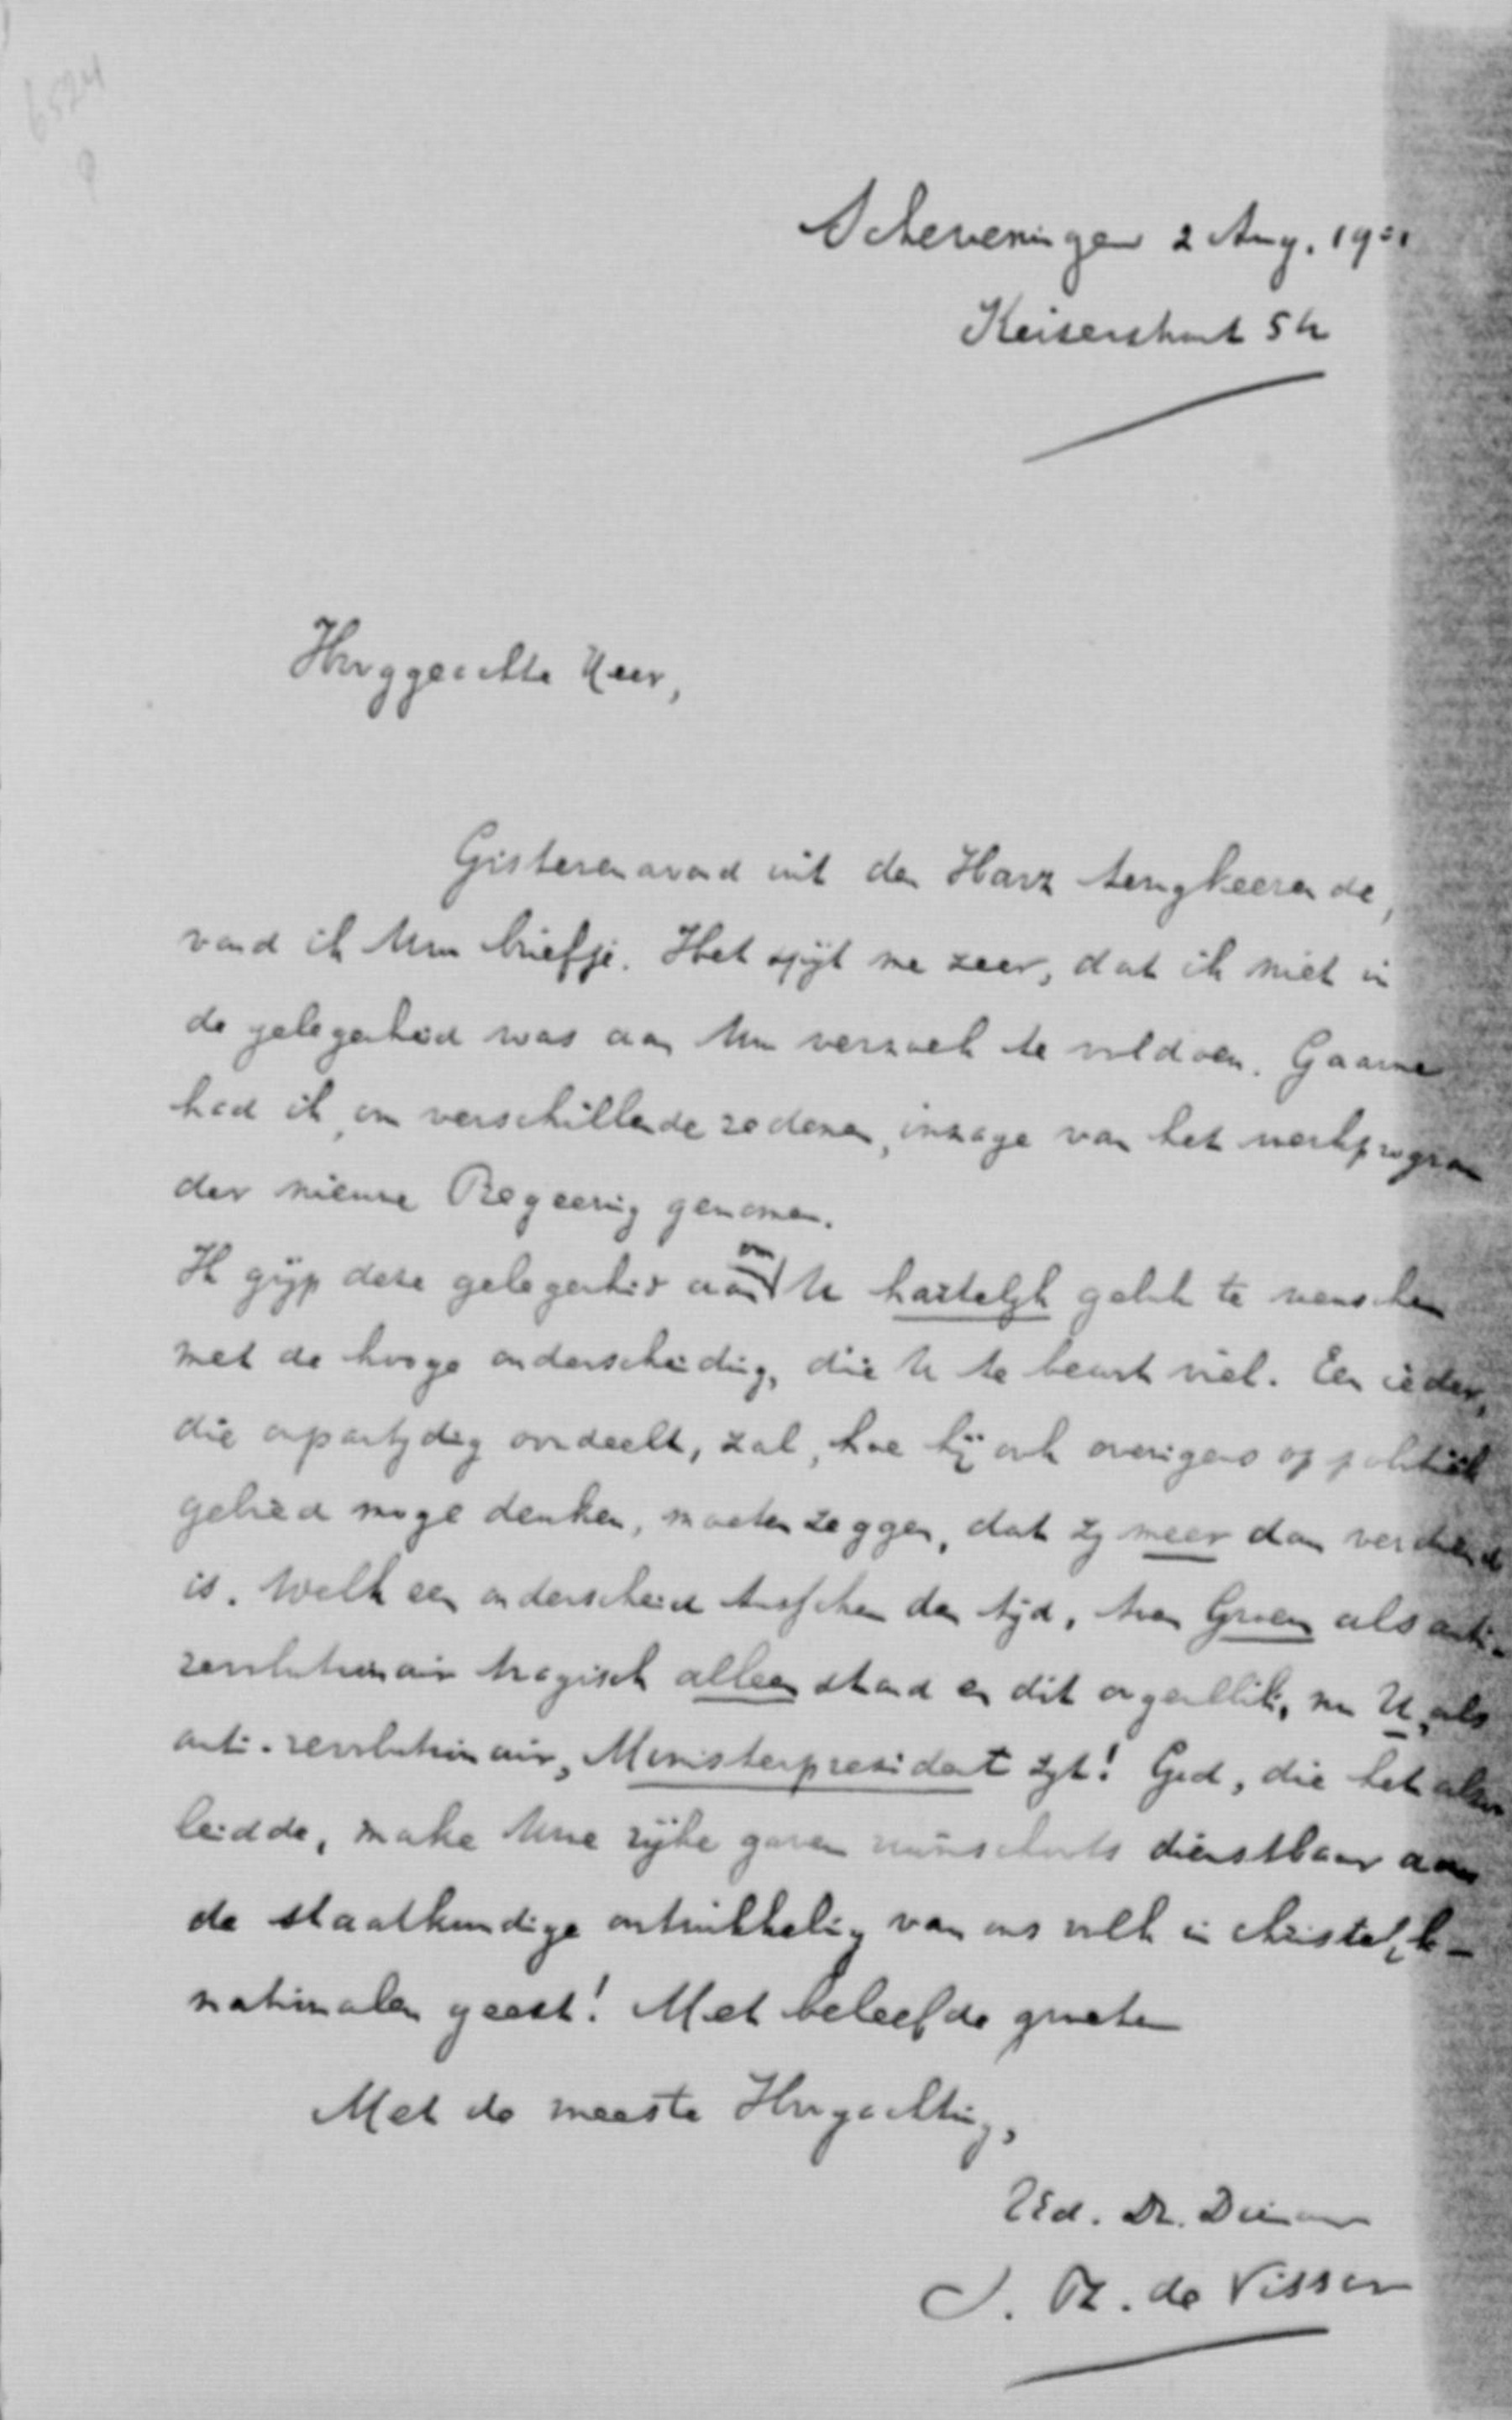 6524
Scheveningen 2 Aug. 1901
Keizerstraat 54
Hooggeachte Heer,
Gisterenavond uit den Harz terugkeerende,
vond ik Uw briefje. Het spijt me zeer, dat ik niet in
de gelegenheid was aan Uw verzoek te voldoen. Gaarne
had ik, om verschillende redenen, inzage van het werkprogram
der nieuwe Regeering genomen.
Ik grijp deze gelegenheid aan om U hartelijk geluk te wenschen
met de hooge onderscheiding, die U te beurt viel. Een ieder,
die onpartijdig oordeelt, zal, hoe hij ook overigens op politiek
gebied moge denken, moeten zeggen, dat zij meer dan verdiend
is. Welk een onderscheid tusschen den tijd, toen Groen als anti-
revolutionair tragisch alleen stond en dit oogenblik, nu U, als
anti-revolutionair, Ministerpresident zijt! God, die het alzoo
leidde, make Uwe rijke gaven dienstbaar aan
de staatkundige ontwikkeling van ons volk in christelijk-
nationalen geest! Met beleefde groeten
Met de meeste Hoogachting,
UEd. Dr. Dienaar
J. Th. de Visser